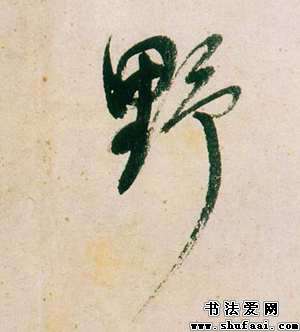 野
书法爱网
www.shufaai.com